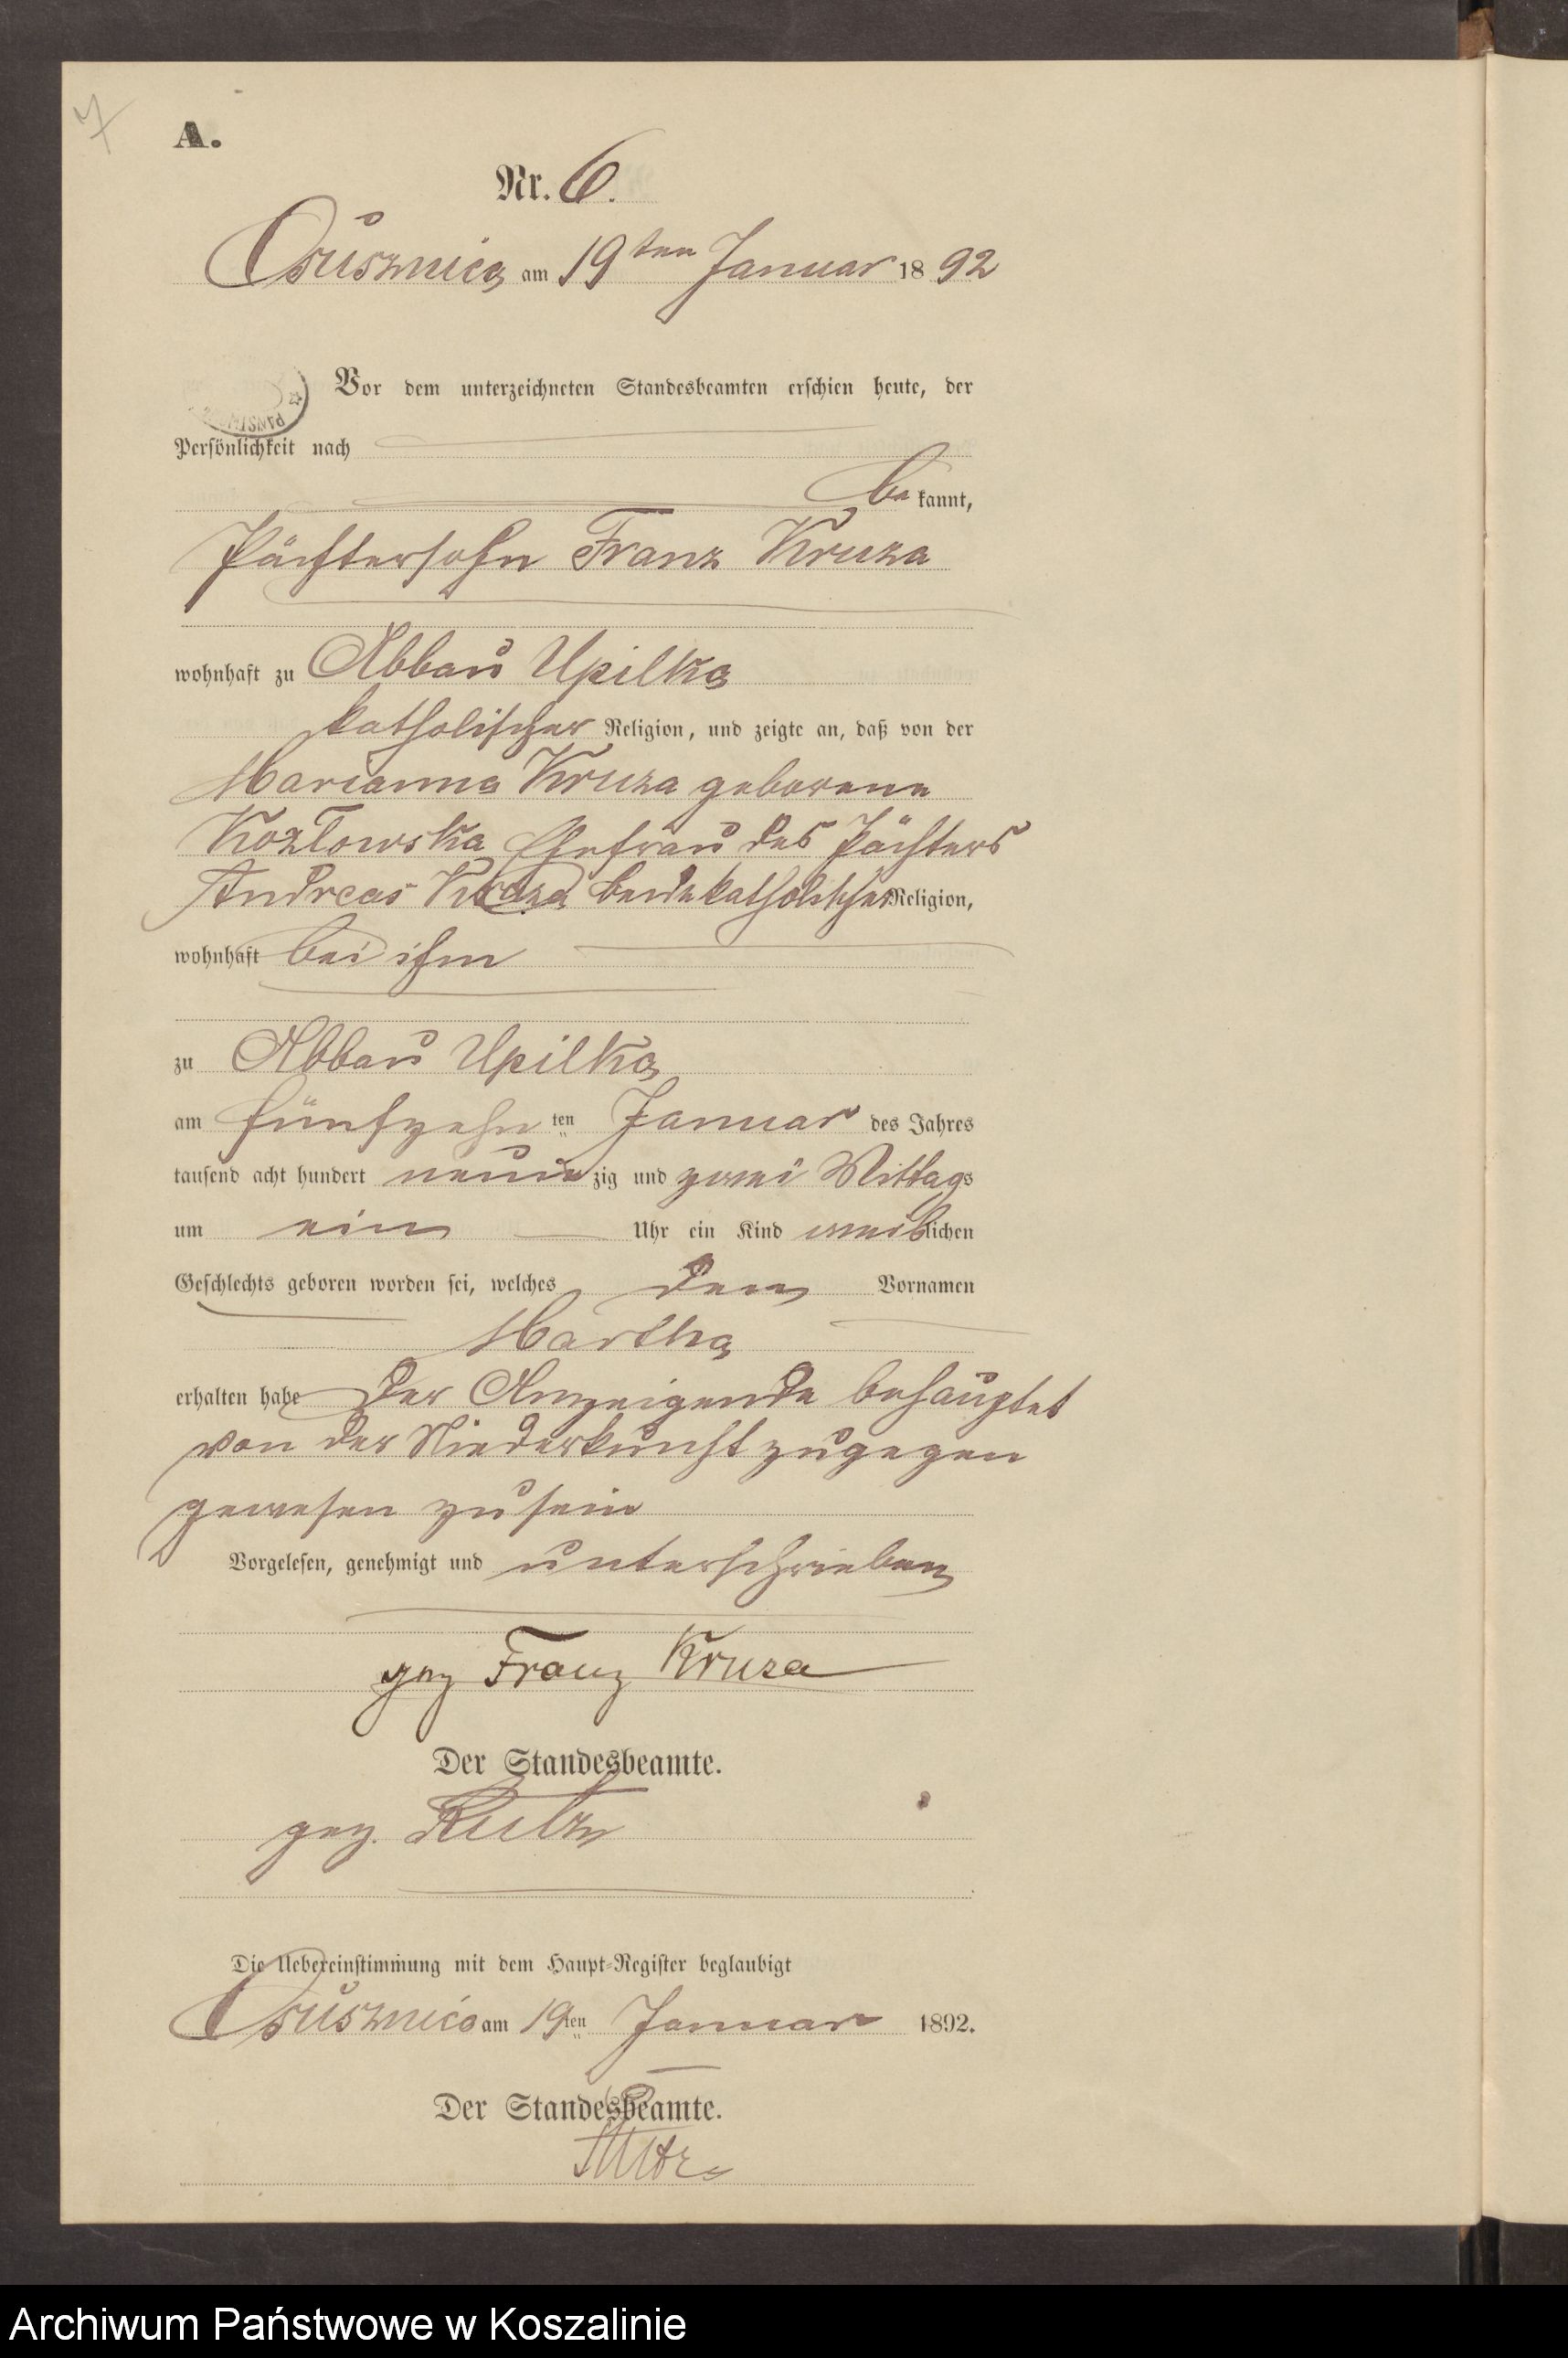 7
A.
Nr. 6.
Osusznica am 19ten Januar 1892
Vor dem unterzeichneten Standesbeamten erschien heute, der
Persönlichkeit nach
bekannt,
Pächtersohn Franz Kruza
wohnhaft zu Abbau Upilka
katholischer Religion, und zeigte an, daß von der
Marianna Kruza geborene
Kozlowska Ehefrau des Pächters
Andreas Kruza beide katholischer Religion,
wohnhaft bei ihm
zu Abbau Upilka
am fünfzehnten Januar des Jahres
tausend acht hundert neunzig und zwei Mittags
um ein Uhr ein Kind weiblichen
Geschlechts geboren worden sei, welches den Vornamen
Martha
erhalten habe Der Anzeigende behauptet
von der Niederkunft zugegen
gewesen zu sein
Vorgelesen, genehmigt und unterschrieben
gez Franz Kruza
Der Standesbeamte.
gez.
Die Uebereinstimmung mit dem Haupt-Register beglaubigt
Osusznica am 19ten Januar 1892.
Der Standesbeamte.
Archiwum Państwowe w Koszalinie